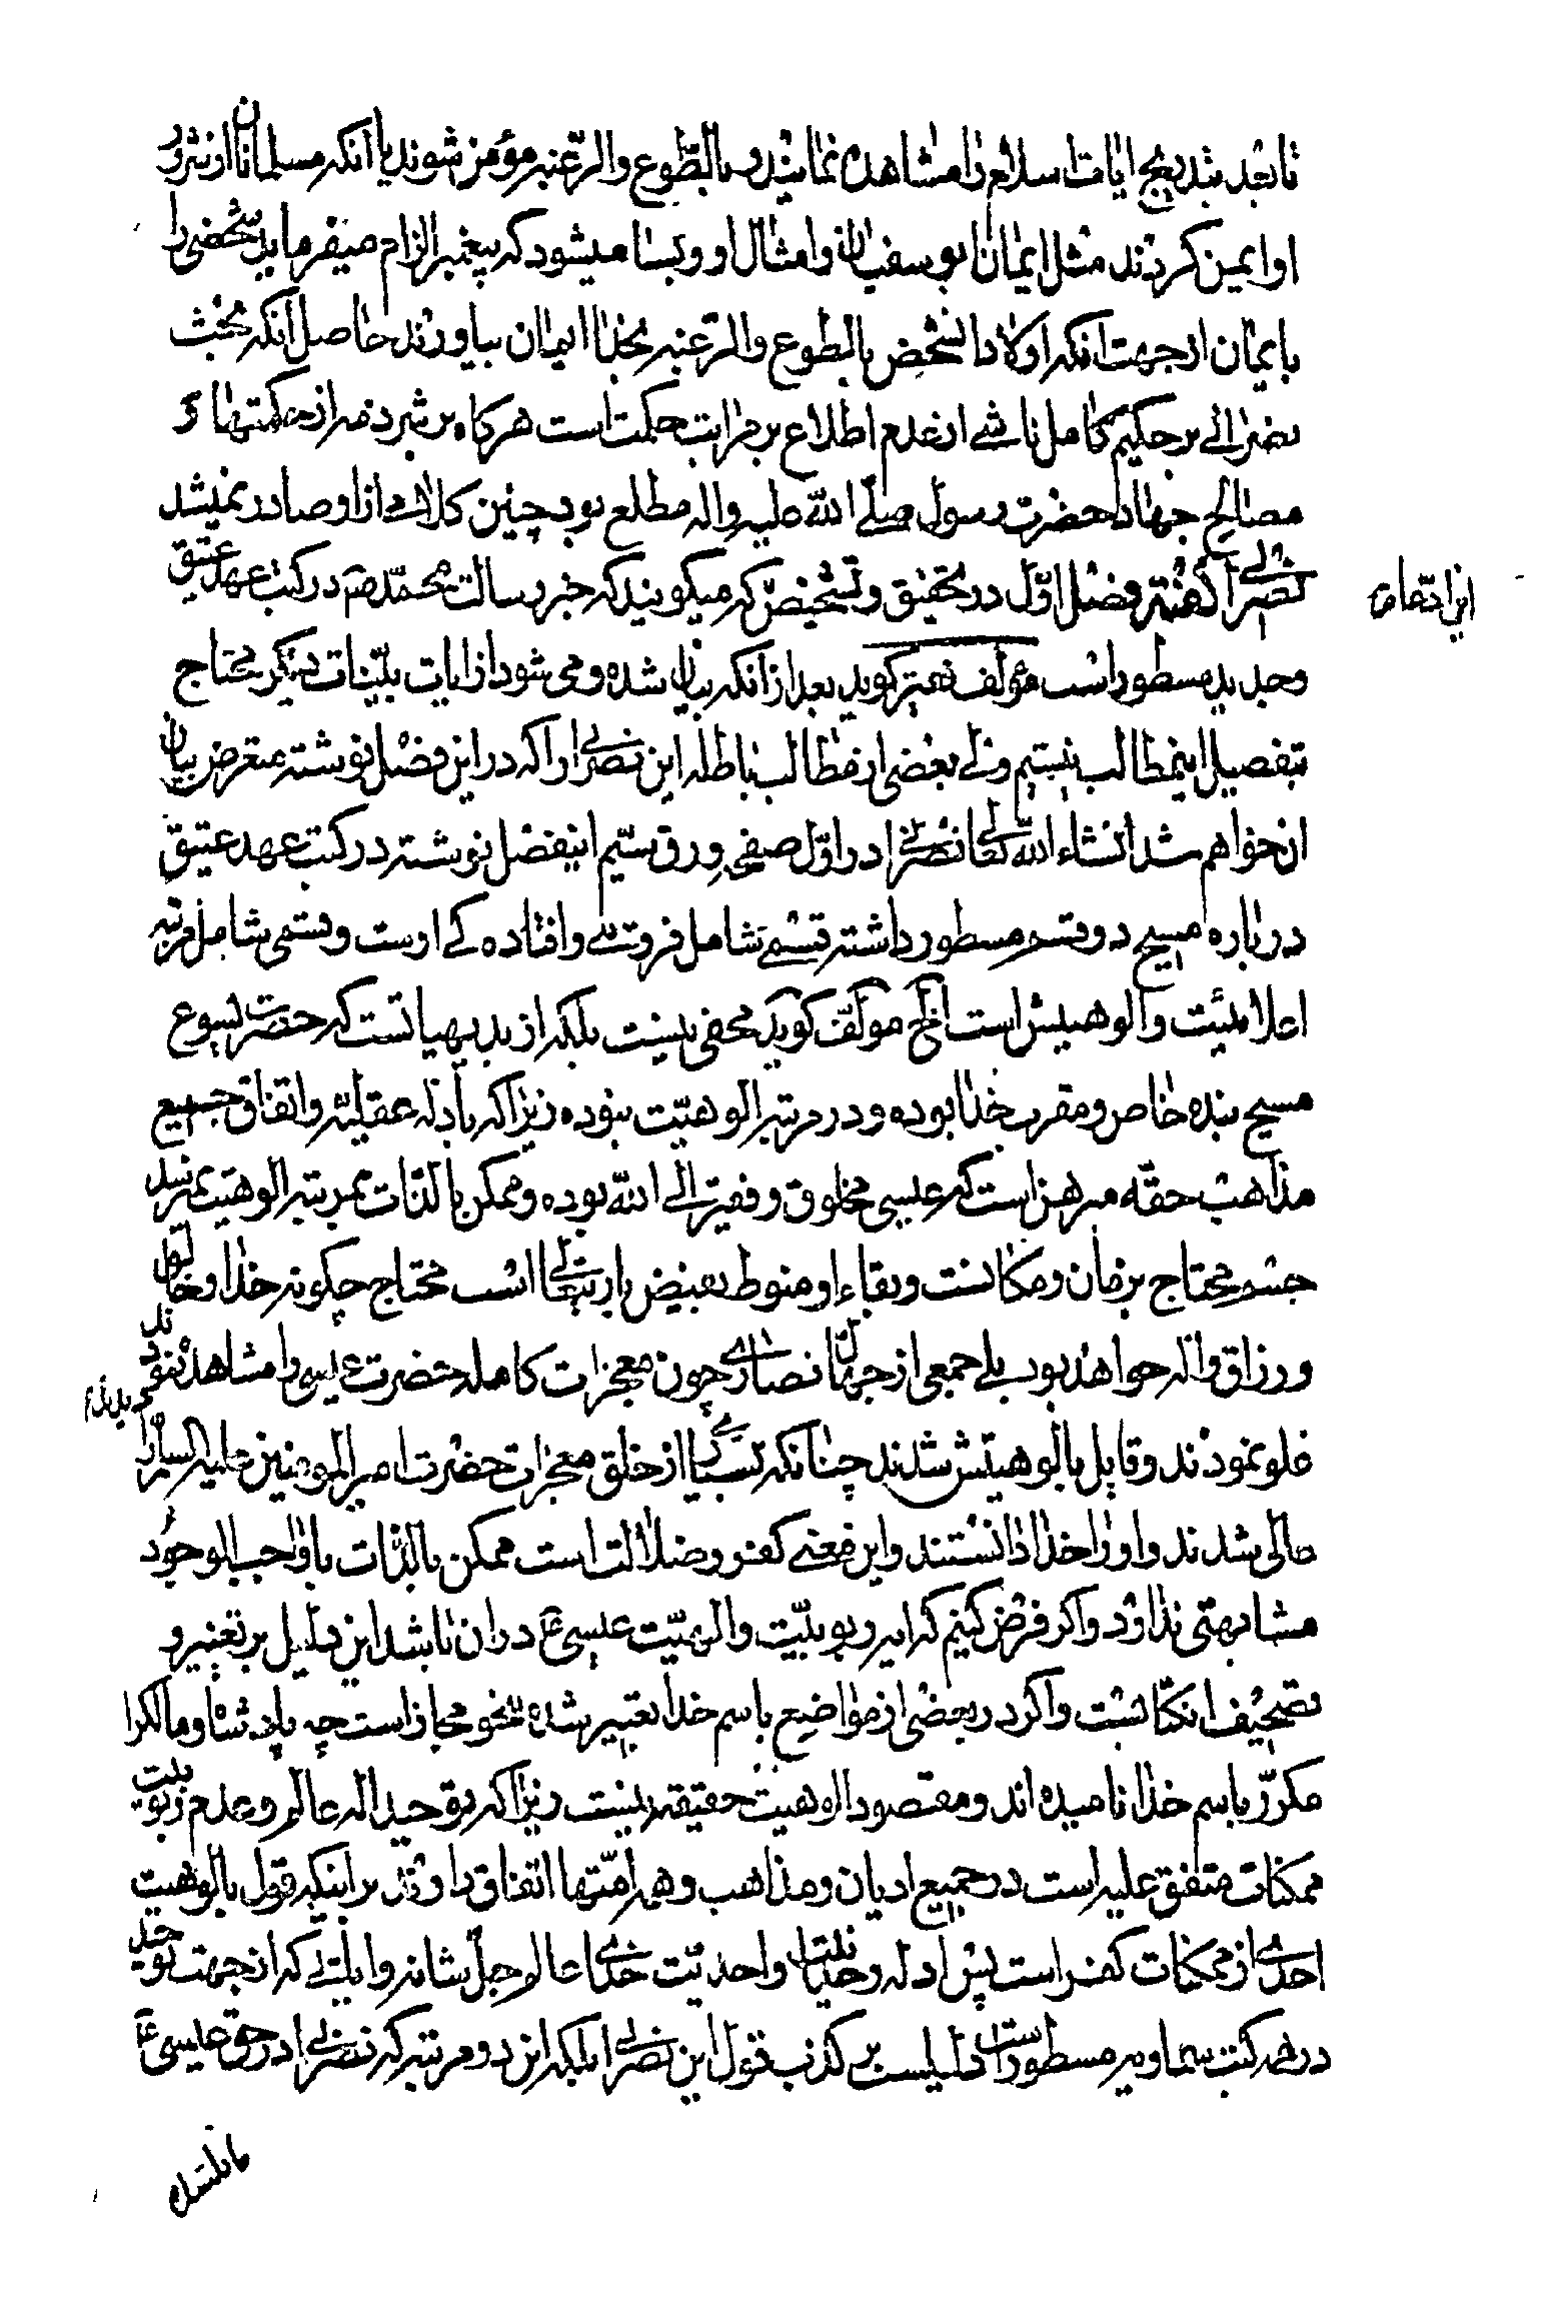 تا بعد بتدریج ایات اسلام را مشاهده نمایند و بالطّوع والرّغبه مؤمن شوند یا انکه مسلمانان از شرور
او ایمن کردند مثل ایمان ابو سفیان و امثال او و بسا میشود که پیغمبر الزام میفرماید شخصی را
بایمان از جهت انکه اولاد انشخص بالطوع والرّغبه بخدا ایمان بیاورند حاصل انکه بحث
نصرانی بر حکیم کامل ناشی از عدم اطلاع بر مراتب حکمت است هرکاه بر شرذمه از حکمتها و
مصالح جهاد حضرت رسول صلّی اللّه علیه واله مطلع بود چنین کلامی از او صادر نمیشد
نصرانی کفته فصل اوّل در تحقیق و تشخیص که میکویند که خبر رسالت محمّد ص در کتب عهد عتیق
وجدید مسطور است مؤلف فقیر کوید بعد از انکه بیان شده و می شود از ایات بیّنات دیکر محتاج
بتفصیل اینمطالب نیستیم ولی بعضی از مطالب باطله این نصرانی را که در این فصل نوشته متعرض بیان
ان خواهم شد انشاء اللّه تعالی نصرانی در اوّل صفحه ورق سیّم اینفصل نوشته در کتب عهد عتیق
در باره مسیح دو قسم مسطور داشته قسمی شامل فروتنی وافتاده کی اوست وقسمی شامل مرتبه
اعلائیت والوهیتش است الخ مؤلف کوید مخفی نیست بلکه از بدیهیاتست که حضرت یسوع
مسیح بنده خاص و مقرب خدا بوده و در مرتبه الوهیّت نبوده زیرا که بادله عقلیّه واتفاق جمیع
مذاهب حقّه مبرهن است که عیسی مخلوق وفقیر الی اللّه بوده وممکن بالذّات بمرتبه الوهیت نمیرسد
جسم محتاج بزمان ومکانست وبقاء او منوط بفیض باریتعالی است محتاج چکونه خدا وخالق
ورزاق واله خواهد بود بلی جمعی از جهال نصاری چون معجزات کامله حضرت عیسی را مشاهده نمودند
غلو نمودند وقایل بالوهیتش شدند چنانکه بسیاری از خلق معجزات حضرت امیرالمومنین علیه السلام را دیدند
غالی شدند واو را خدا دانستند واین معنی کفر وضلالت است ممکن بالذّات با واجب الوجود
مشابهتی ندارد واکر فرض کنیم که ایه ربوبیّت والهیّت عیسی ع در ان باشد این دلیل بر تغییر و
تصحیف انکتابست واکر در بعضی از مواضع باسم خدا تعبیر شده بنحو مجاز است چه پادشاه ومالکرا
مکرّر باسم خدا نامیده اند ومقصود الوهیت حقیقیه نیست زیرا که توحید اله عالم وعدم ربوبیت
ممکنات متفق علیه است در جمیع ادیان ومذاهب وهمه امّتها اتفاق دارند بر اینکه قول بالوهیت
احدی از ممکنات کفر است پس ادله وحدانیت واحدیّت خدای عالم جلّ شانه وایاتی که از جهت توحید
در همه کتب سماویه مسطور است دلیلست بر کذب قول این نصرانی بلکه این دو مرتبه که نصرانی در حق عیسی ع